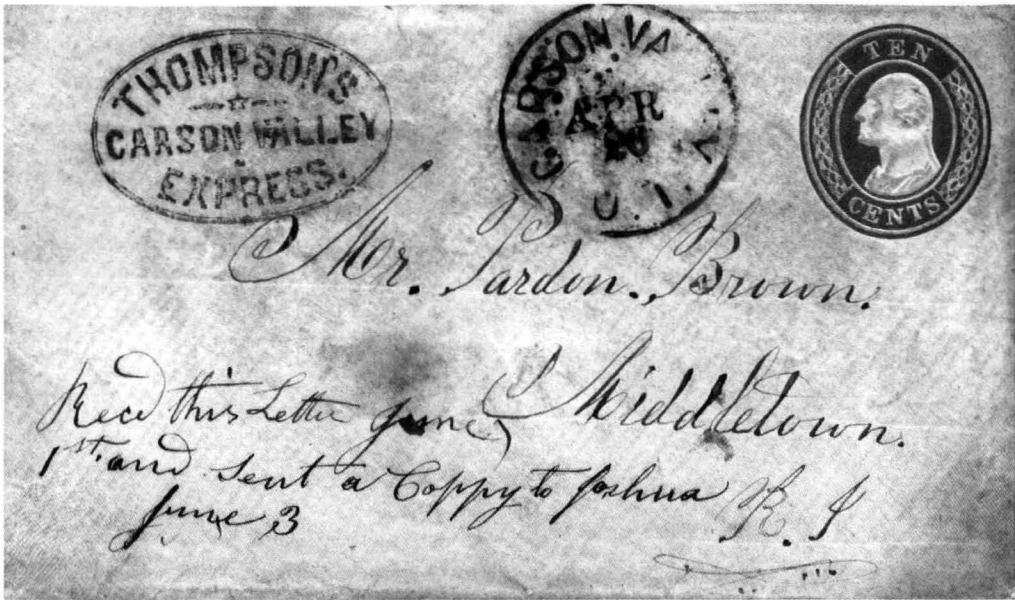 THOMPSON'S
CARSON VALLEY
EXPRESS.
CARSON VA
APR
20
U.T.
TEN
CENTS
Mr. Pardon. Brown.
Middletown.
R. I
Recd this Letter June
1st. and Sent a Coppy to Joshua
June 3